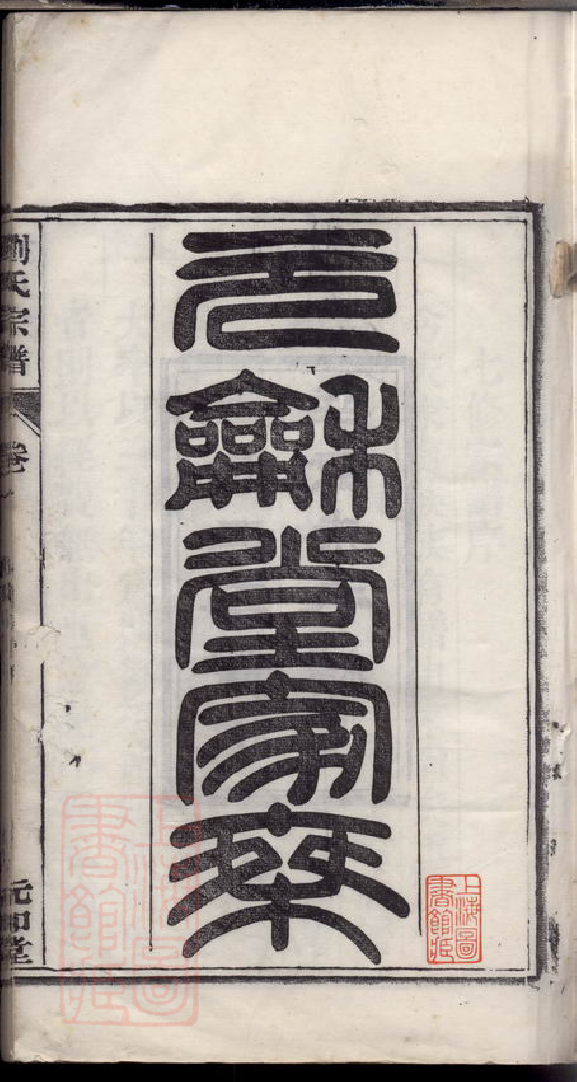 元龢堂家琹
上海圖
書館藏
劉氏宗譜
卷
元和堂
上海圖
書館藏